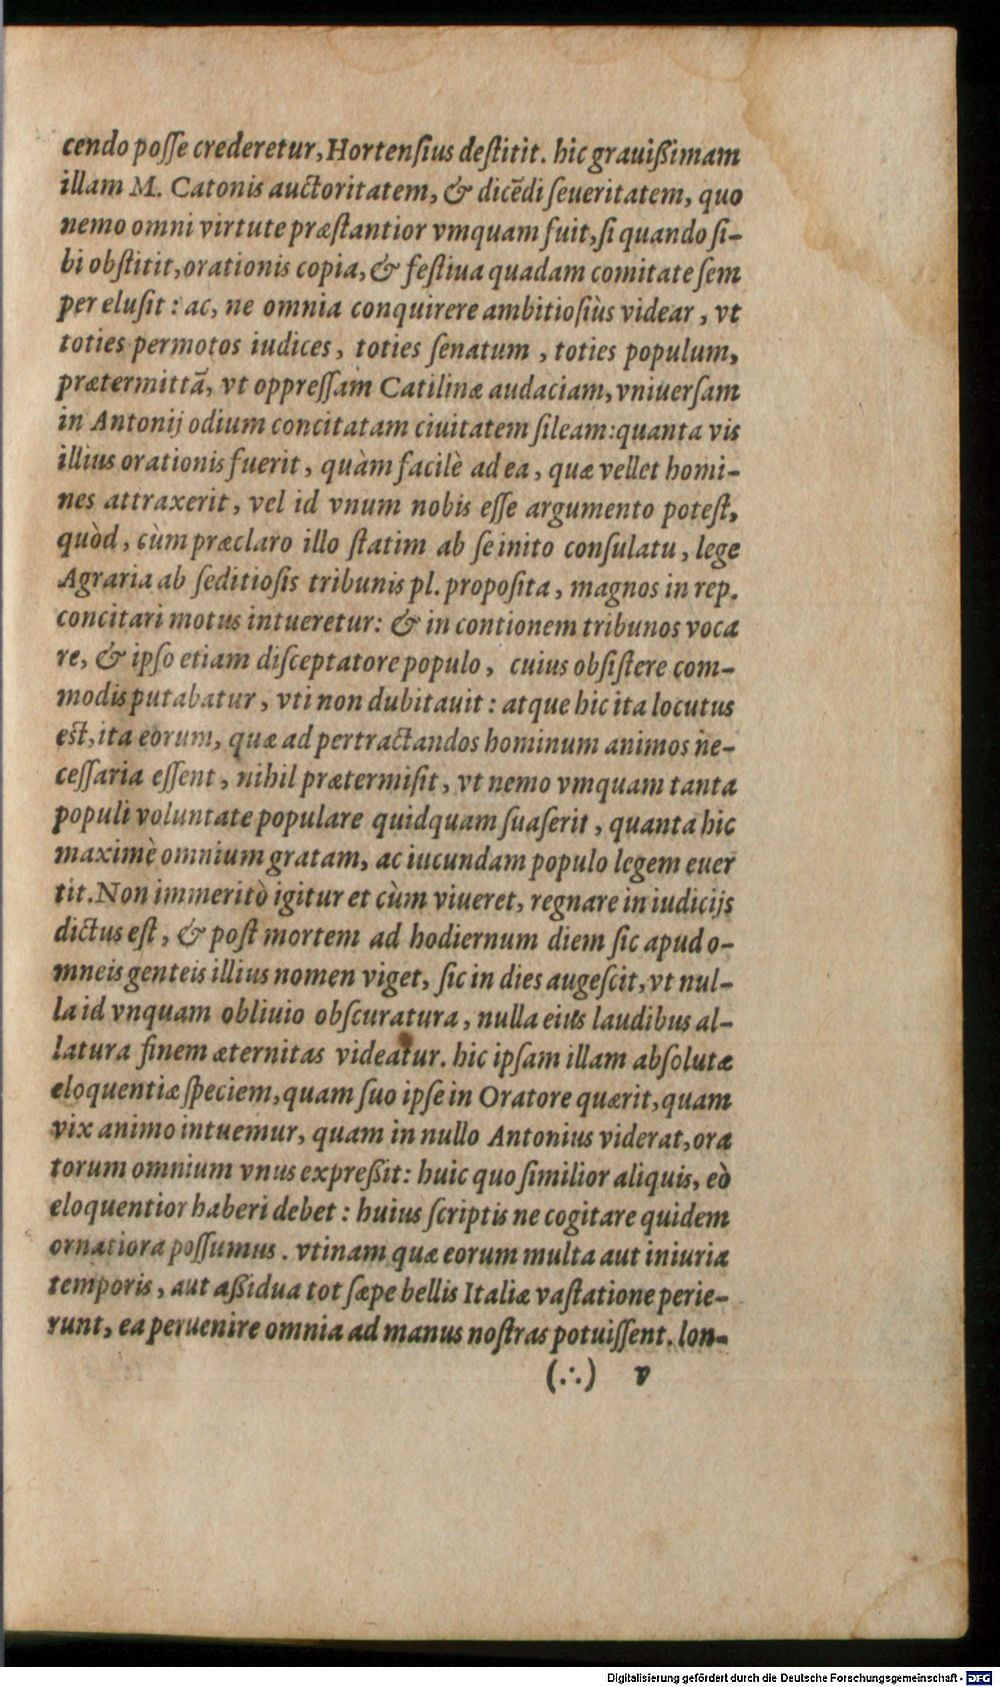 cendo posſe crederetur, Hortenſius deſtitit. hic grauiſſimam
illam M. Catonis auctoritatem, & dicēdi ſeueritatem, quo
nemo omni virtute præſtantior vmquam fuit, ſi quando ſi-
bi obſtitit, orationis copia, & feſtiua quadam comitate ſem
per eluſit: ac, ne omnia conquirere ambitioſiùs videar, vt
toties permotos iudices, toties ſenatum, toties populum,
prætermittā, vt oppreſſam Catilinæ audaciam, vniuerſam
in Antonij odium concitatam ciuitatem ſileam: quanta vis
illius orationis fuerit, quàm facilè ad ea, quæ vellet homi-
nes attraxerit, vel id vnum nobis eſſe argumento poteſt,
quòd, cùm præclaro illo ſtatim ab ſe inito conſulatu, lege
Agraria ab ſeditioſis tribunis pl. propoſita, magnos in rep.
concitari motus intueretur: & in contionem tribunos voca
re, & ipſo etiam diſceptatore populo, cuius obſiſtere com-
modis putabatur, vti non dubitauit: atque hic ita locutus
eſt, ita eorum, quæ ad pertractandos hominum animos ne-
ceſſaria eſſent, nihil prætermiſit, vt nemo vmquam tanta
populi voluntate populare quidquam ſuaſerit, quanta hic
maximè omnium gratam, ac iucundam populo legem euer
tit. Non immeritò igitur et cùm viueret, regnare in iudicijs
dictus eſt, & poſt mortem ad hodiernum diem ſic apud o-
mneis genteis illius nomen viget, ſic in dies augeſcit, vt nul-
la id vnquam obliuio obſcuratura, nulla eius laudibus al-
latura finem æternitas videatur. hic ipſam illam abſolutæ
eloquentiæ ſpeciem, quam ſuo ipſe in Oratore quærit, quam
vix animo intuemur, quam in nullo Antonius viderat, ora
torum omnium vnus expreßit: huic quo ſimilior aliquis, eò
eloquentior haberi debet: huius ſcriptis ne cogitare quidem
ornatiora poſſumus. vtinam quæ eorum multa aut iniuria
temporis, aut aßidua tot ſæpe bellis Italiæ vaſtatione perie-
runt, ea peruenire omnia ad manus noſtras potuiſſent. lon-
(∴) v
Digitalisierung gefördert durch die Deutsche Forschungsgemeinschaft - DFG